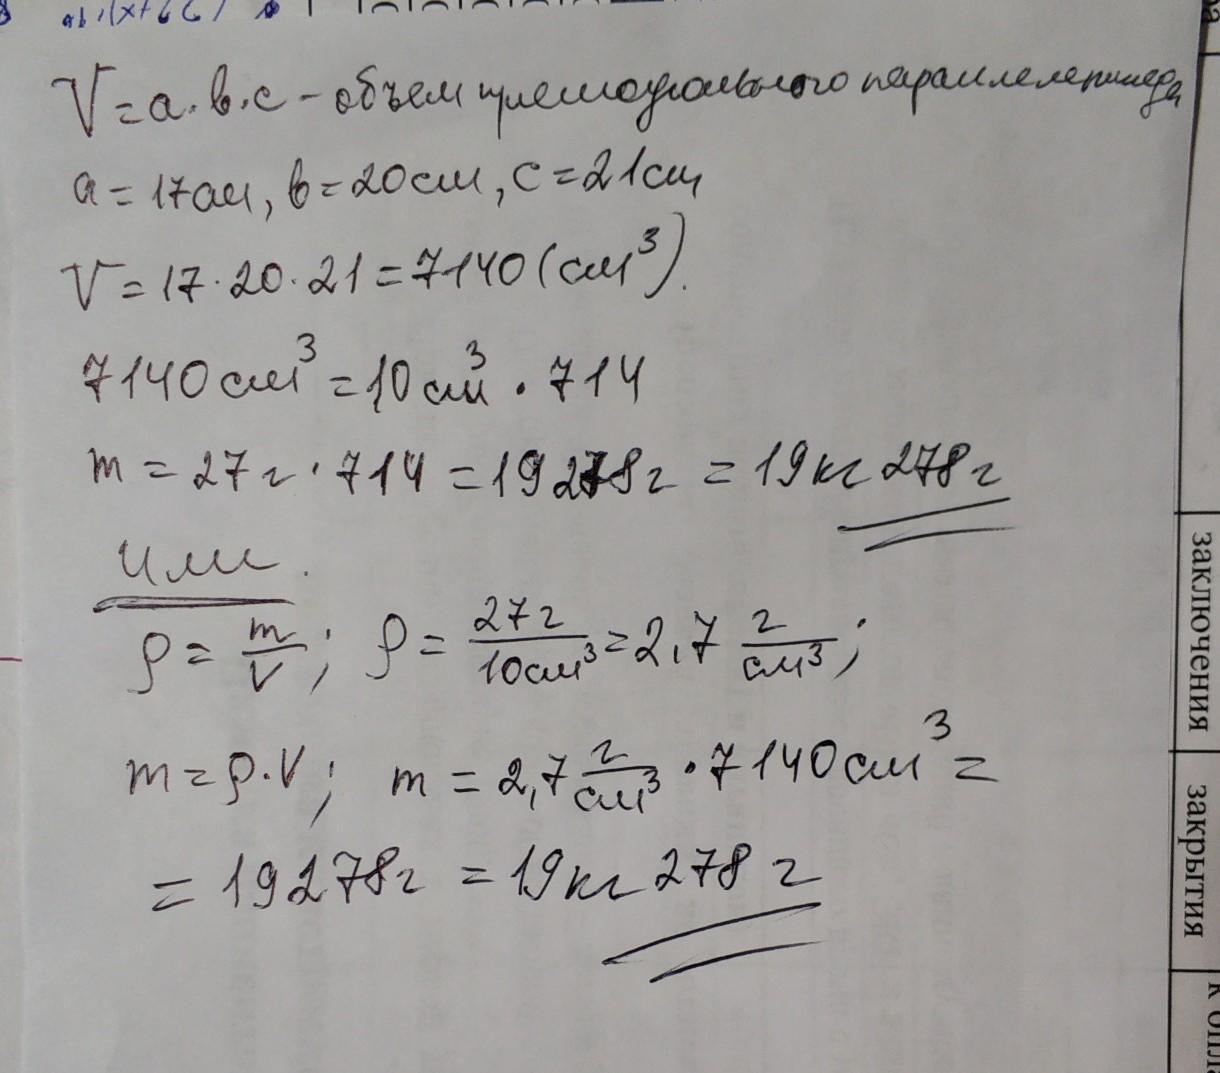 V = a·в·c – объем прямоугольного параллелепипеда
a = 17см, в = 20см, c = 21см
V = 17·20·21 = 7140 (см³).
7140 см³ = 10 см³ · 714
m = 27г · 714 = 19278г = 19кг 278г
или.
ρ = m/V ; ρ = 27г/10см³ = 2,7 г/см³ ;
m = ρ·V ; m = 2,7 г/см³ · 7140 см³ =
= 19278г = 19кг 278 г
заключения
закрытия